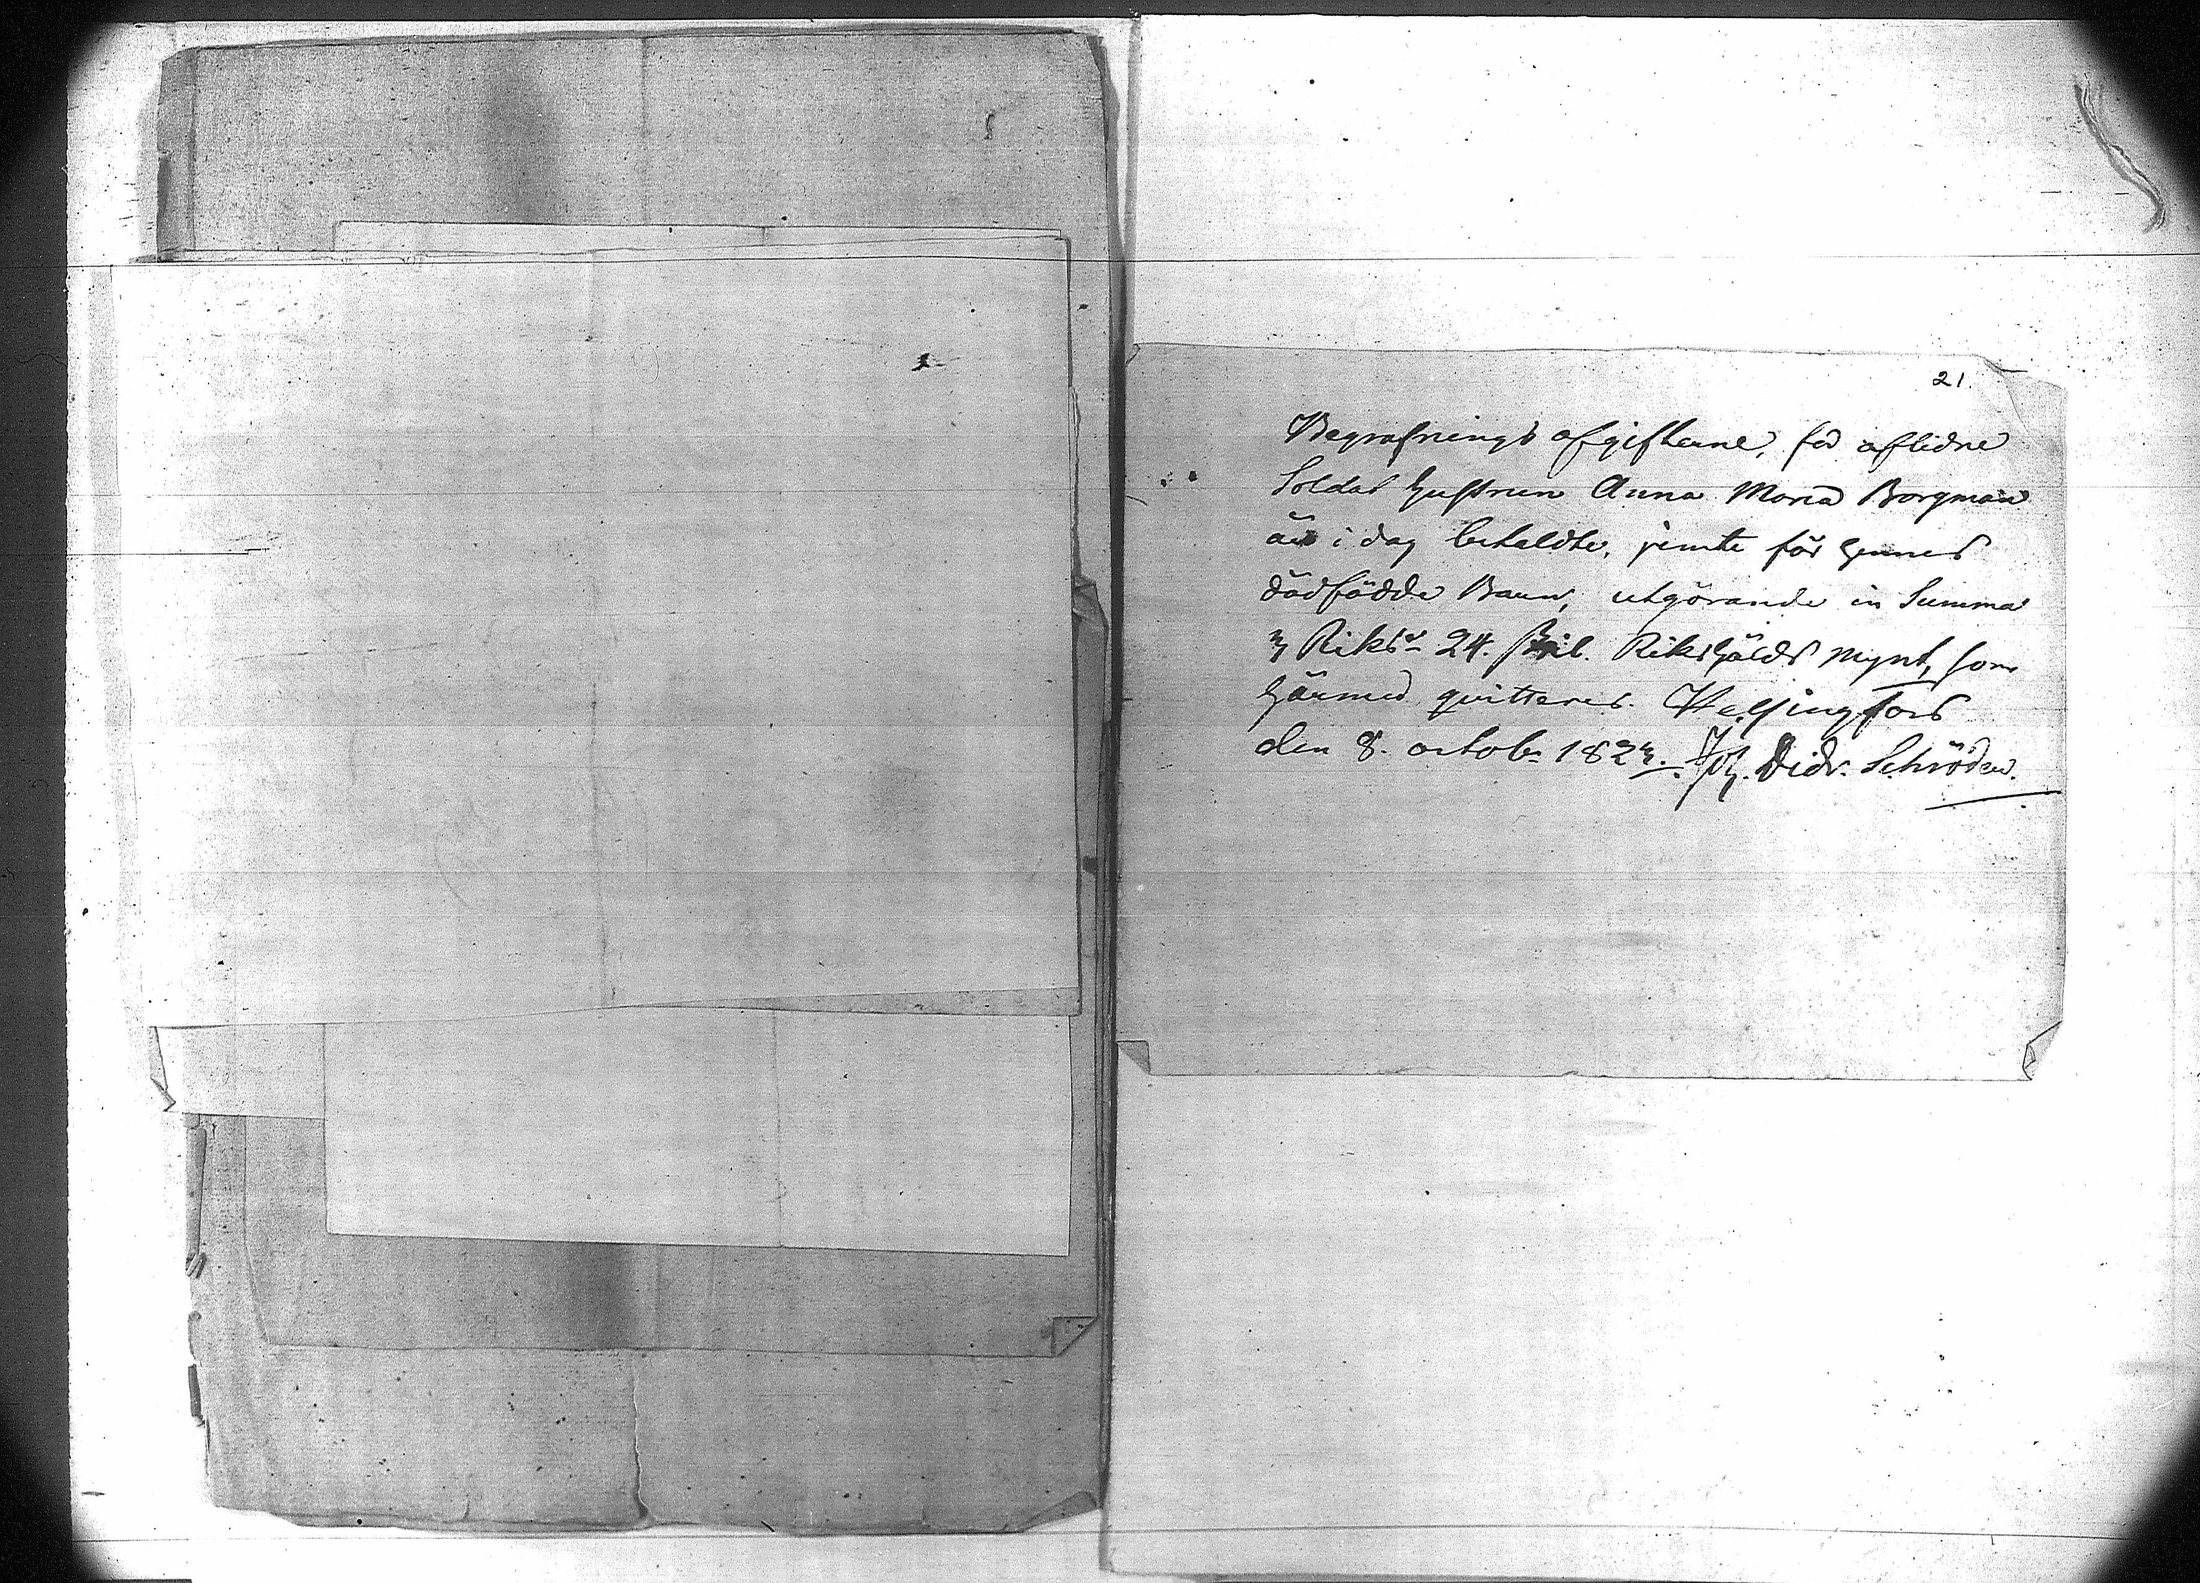 21.
Begrafnings afgifterne, för aflidne
Soldat Hustrun Anna Maria Borgman
äro i dag betaldte, jemte för hennes
dödfödde Barn, utgörande in Summa
3 Riksdr 24. skil. Riksgälds Mynt, som
härmed qvitteras. Helsingfors
den 8. octobr 1823. Joh. Didr. Schröder.